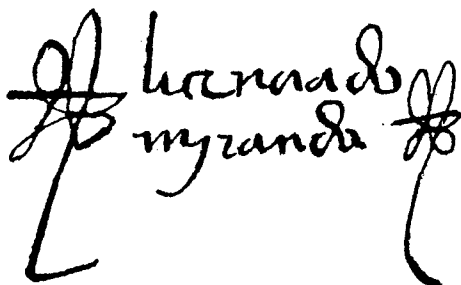 licenciado
myranda